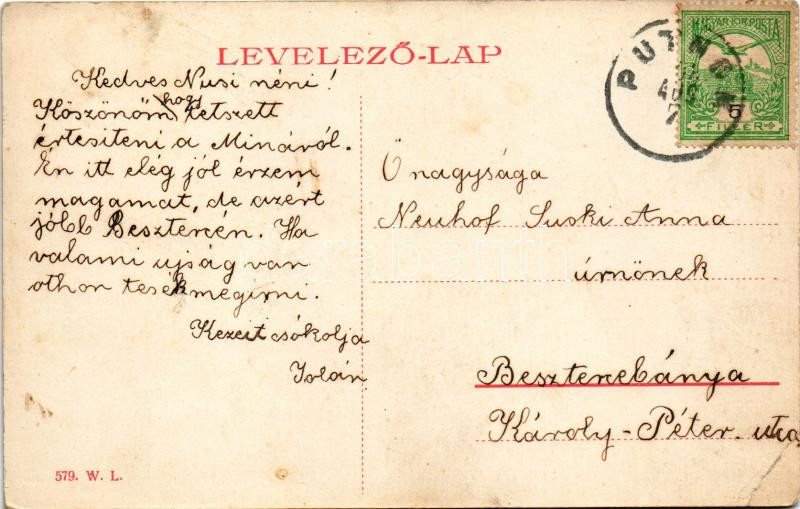 LEVELEZŐ-LAP
Kedves Nusi néni!
Köszönöm hogy tetszett
értesiteni a Mináról.
Én itt elég jól érzem
magamat, de azért
jóbb Besztercén. Ha
valami ujság van
othon tesék megirni.
Kezeit csókolja
Jolán
579. W. L.
MAGYAR KIR. POSTA
5
FILLÉR
AUG
7
Ő nagysága
Neuhof Suski Anna
úrnönek
Besztercebánya
Károly-Péter utca
darabanth